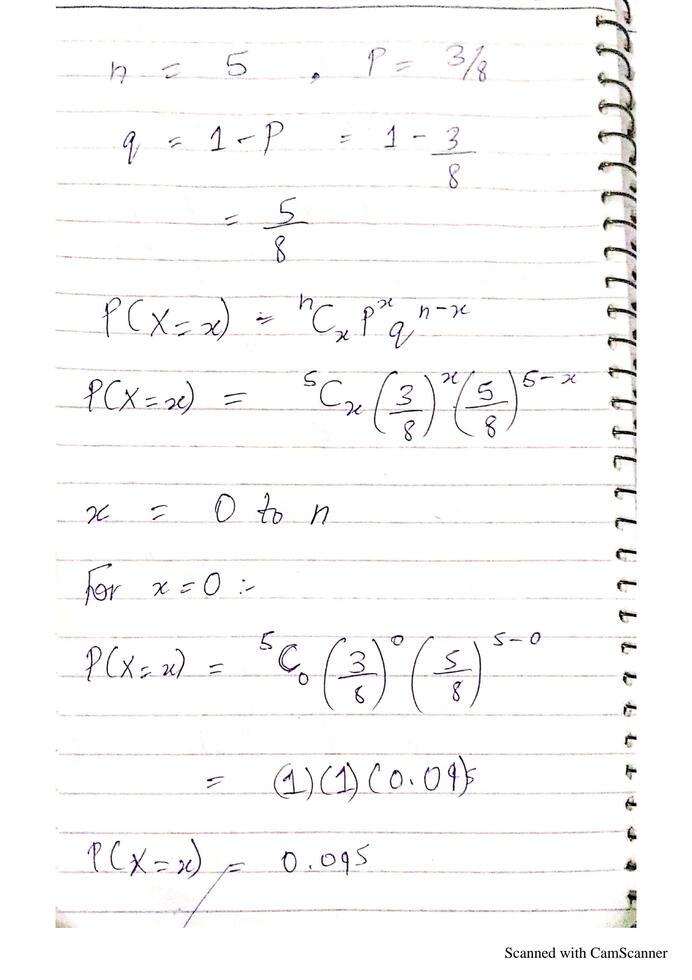 n = 5 , P = 3/8
q = 1 - P = 1 - 3/8
= 5/8
P(X=x) = ⁿCₓ Pˣ qⁿ⁻ˣ
P(X=x) = ⁵Cₓ (3/8)ˣ (5/8)⁵⁻ˣ
x = 0 to n
For x = 0 :-
P(X=x) = ⁵C₀ (3/8)⁰ (5/8)⁵⁻⁰
= (1)(1)(0.095
P(X=x) = 0.095
Scanned with CamScanner